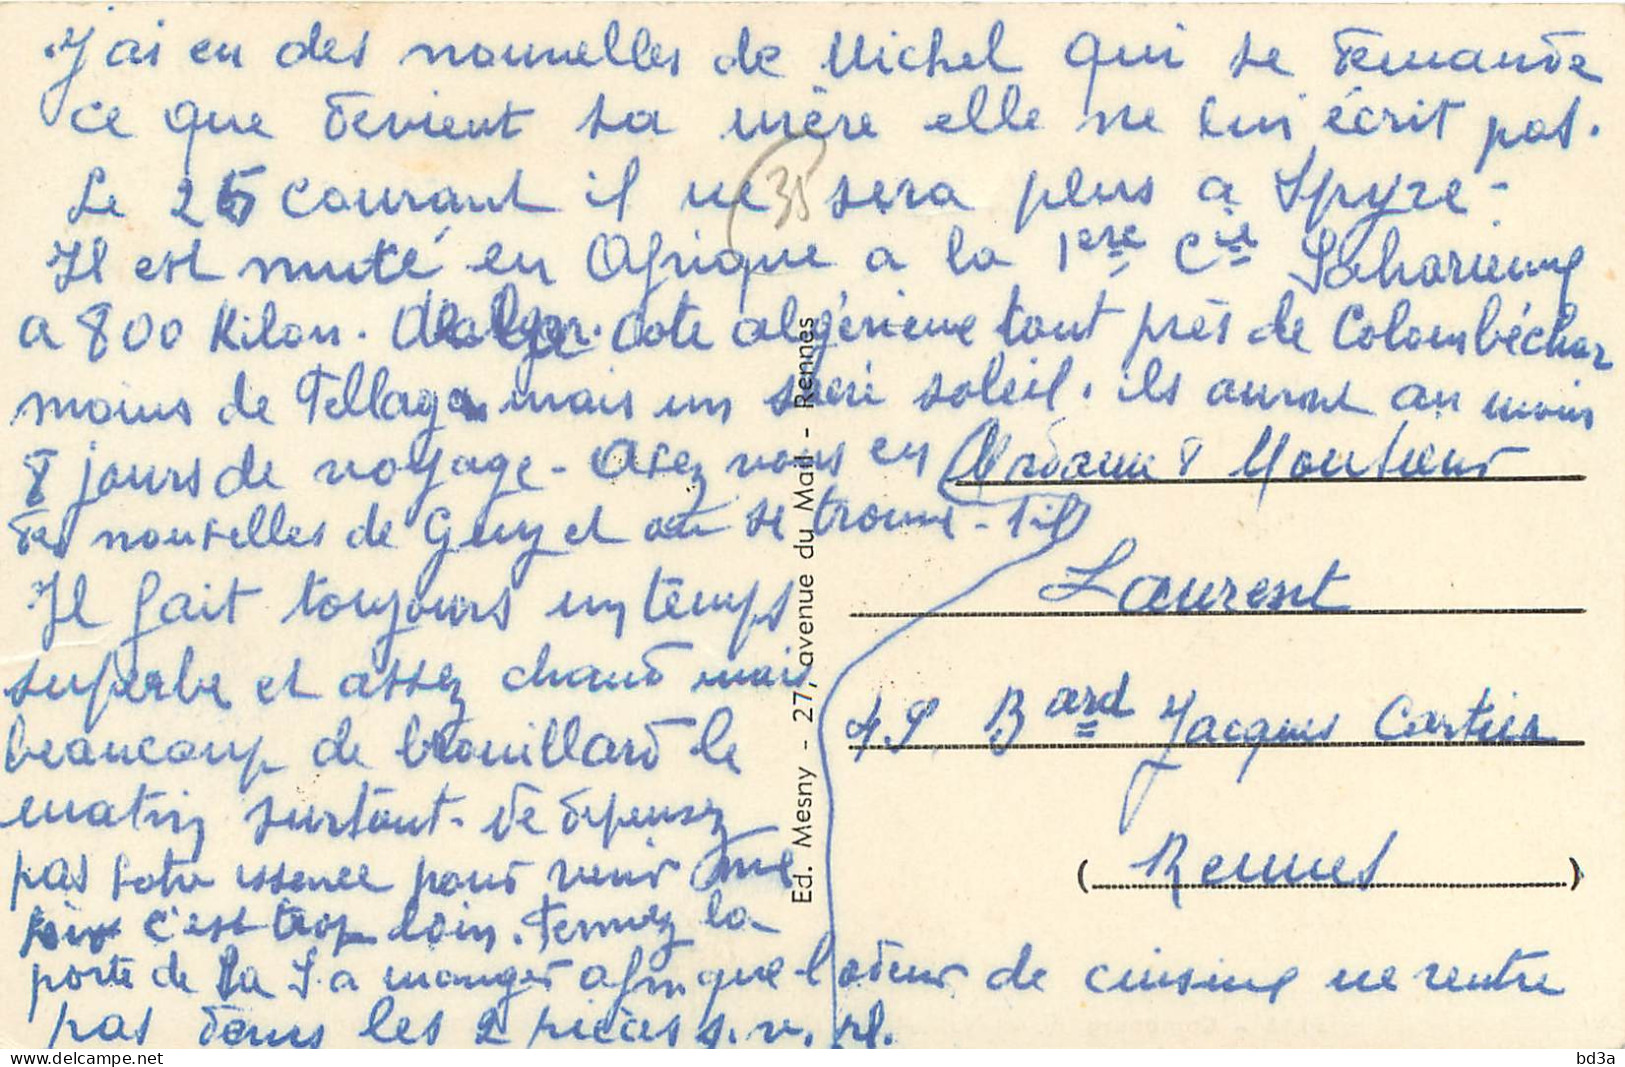 J'ai eu des nouvelles de Michel qui se demande
ce que devient sa mère elle ne lui écrit pas.
Le 25 courant il ne sera plus a Spyre -
Il est muté en Afrique a la 1ere Cie Saharienne
a 800 Kilom. d'alger. Cote algérienne tout près de Colombéchar
moins de Fellaga mais un sacré soleil. ils auront au moins
8 jours de voyage - avez vous eu
des nouvelles de Guy et ou se trouve-t-il
Il fait toujours un temps
superbe et assez chaud mais
beaucoup de brouillard le
matin surtout - Ne dépensez
pas votre essence pour venir me
voir c'est trop loin. Fermez la
porte de la S. a manger afin que l'odeur de cuisine ne rentre
pas dans les 2 pièces s.v.pl.
Madame & Monsieur
Laurent
49 Bard Jacques Cartier
(Rennes)
35
Ed. Mesny - 27, avenue du Mail - Rennes
bd3a